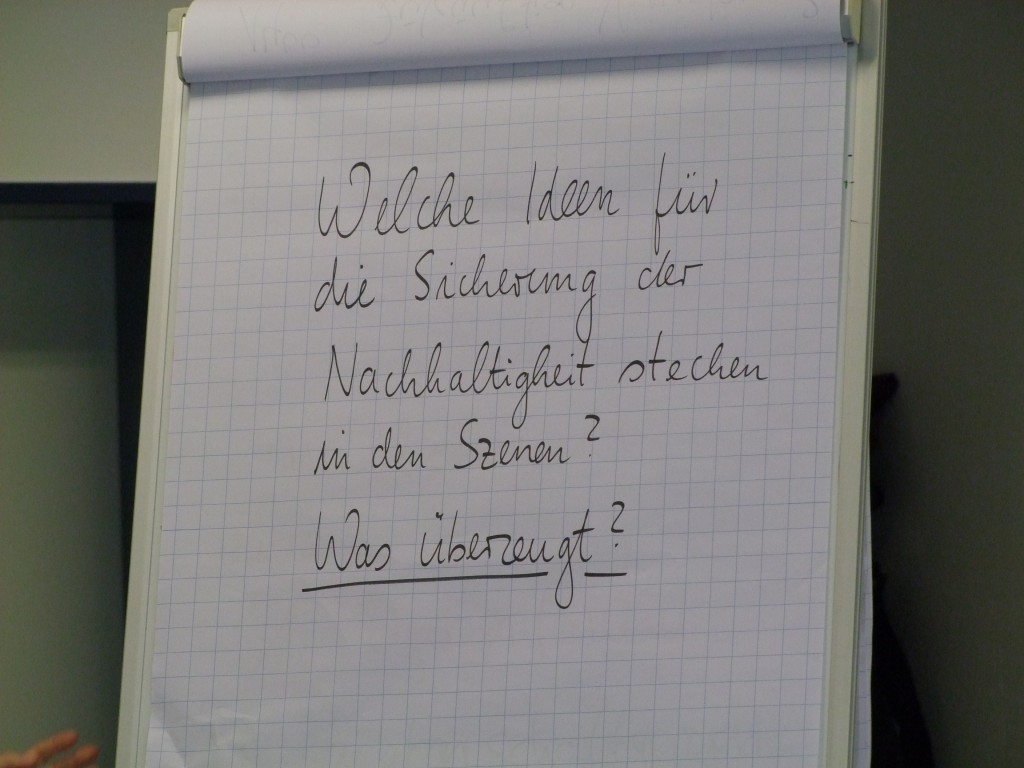 Welche Ideen für
die Sicherung der
Nachhaltigkeit stecken
in den Szenen?
Was überzeugt?